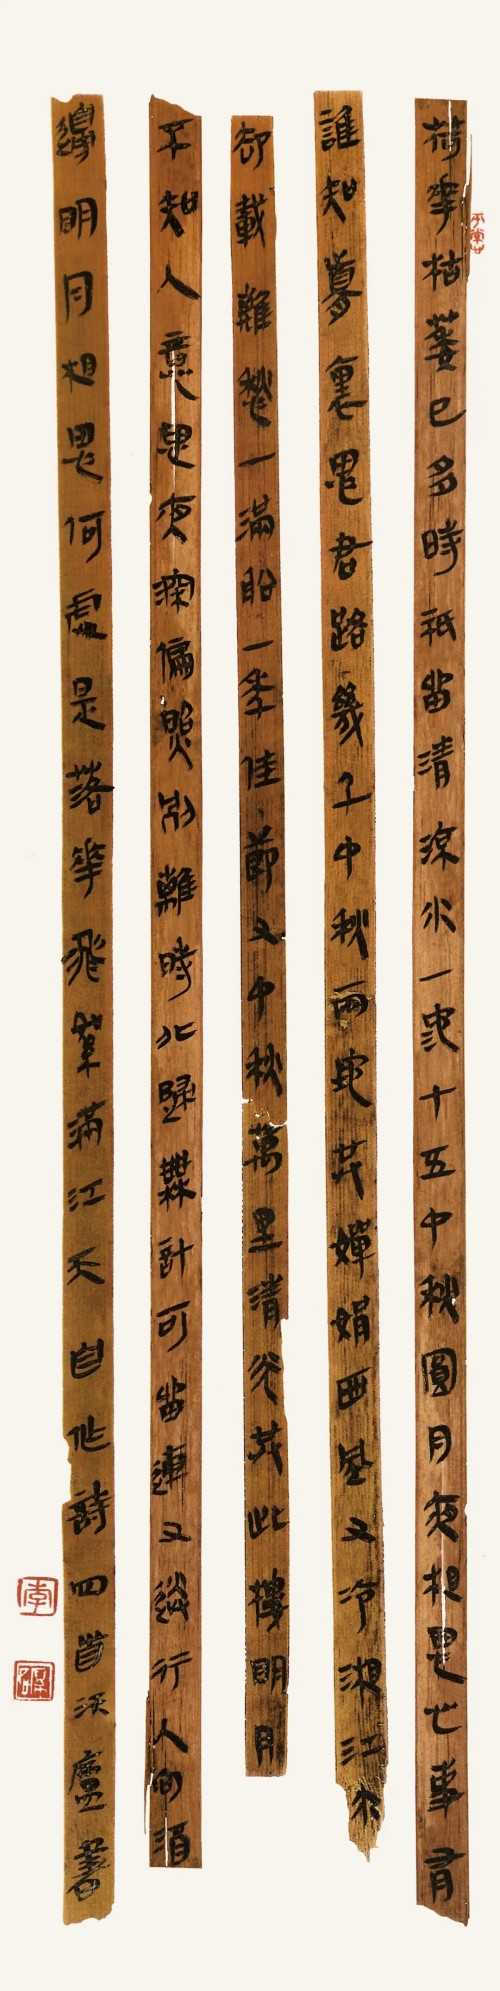 荷華枯萎已多時祇留清涼水一池十五中秋圓月夜相思心事有
誰知夢裏思君路幾千中秋兩地共嬋娟西風又冷湘江水
卻載離愁一滿船一年佳節又中秋萬里清光共此樓明月
不知人意思夜深偏照別離時北歸無計可留連又送行人向酒
邊明月相思何處是落華飛絮滿江天自作詩四首沃廬書
李